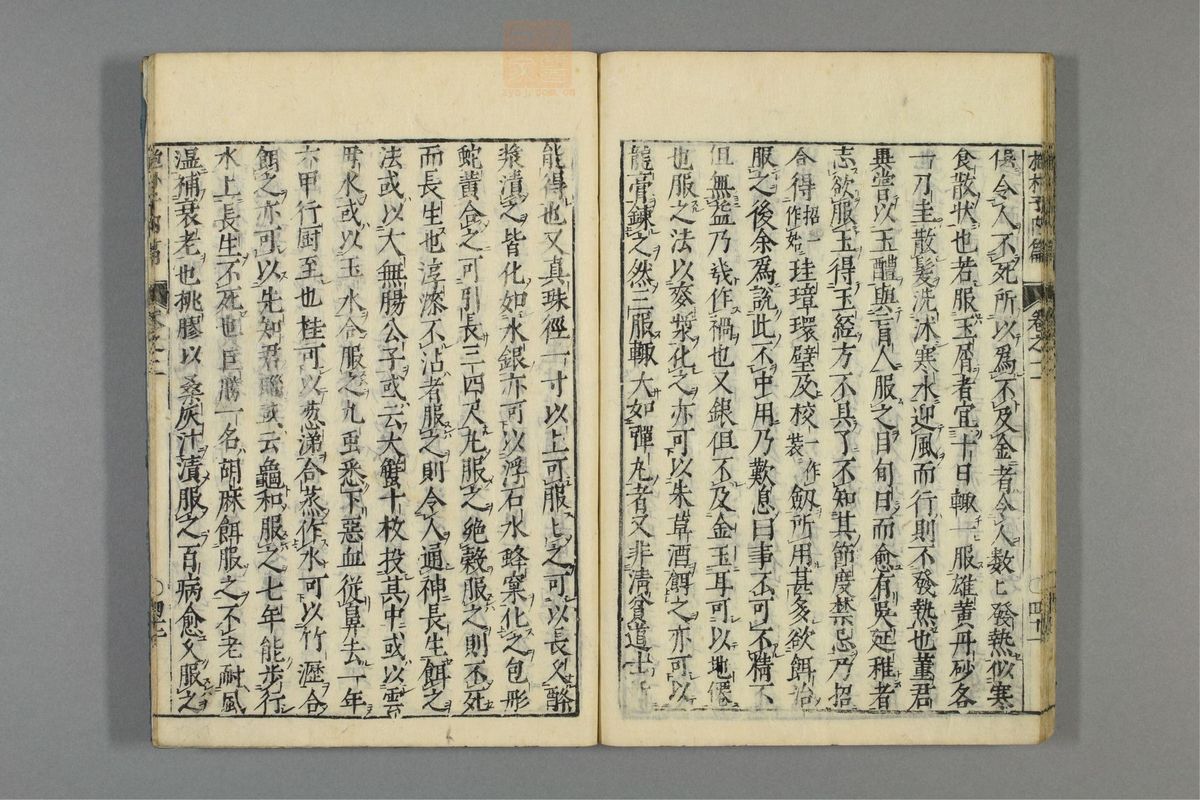 抱朴子内篇 卷之二 〇四十一
俱令人不死所以爲不及金者令人數〻發熱似寒
食散状也若服玉屑者宜十日輙一服雄黄丹砂各
一刀圭散髮洗沐寒水迎風而行則不發熱也董君
異嘗以玉醴與盲人服之目旬日而愈有吳延稚者
志欲服玉得玉經方不具了不知其節度禁忌乃招
合得招一作始珪璋環璧及校一作裝劔所用甚多欲餌治
服之後余爲說此不中用乃歎息曰事不可不精不
但無益乃幾作禍也又銀但不及金玉耳可以地僊
也服之法以麥漿化之亦可以朱草酒餌之亦可以
龍膏鍊之然三服輙大如彈丸者又非淸貧道士
能得也又真珠徑一寸以上可服〻之可以長久酪
漿漬之皆化如水銀亦可以浮石水蜂窠化之包形
蛇黄合之可引長三四尺丸服之絶穀服之則不死
而長生也淳漆不沾者服之則令人通神長生餌之
法或以大無腸公子或云大蟹十枚投其中或以雲
母水或以玉水合服之九虫悉下惡血從鼻去一年
六甲行厨至也桂可以葱涕合蒸作水可以竹瀝合
餌之亦可以先知君腦或云龜和服之七年能步行
水上長生不死也巨勝一名胡麻餌服之不老耐風
濕補衰老也桃膠以桑灰汁漬服之百病愈久服之
卷之二